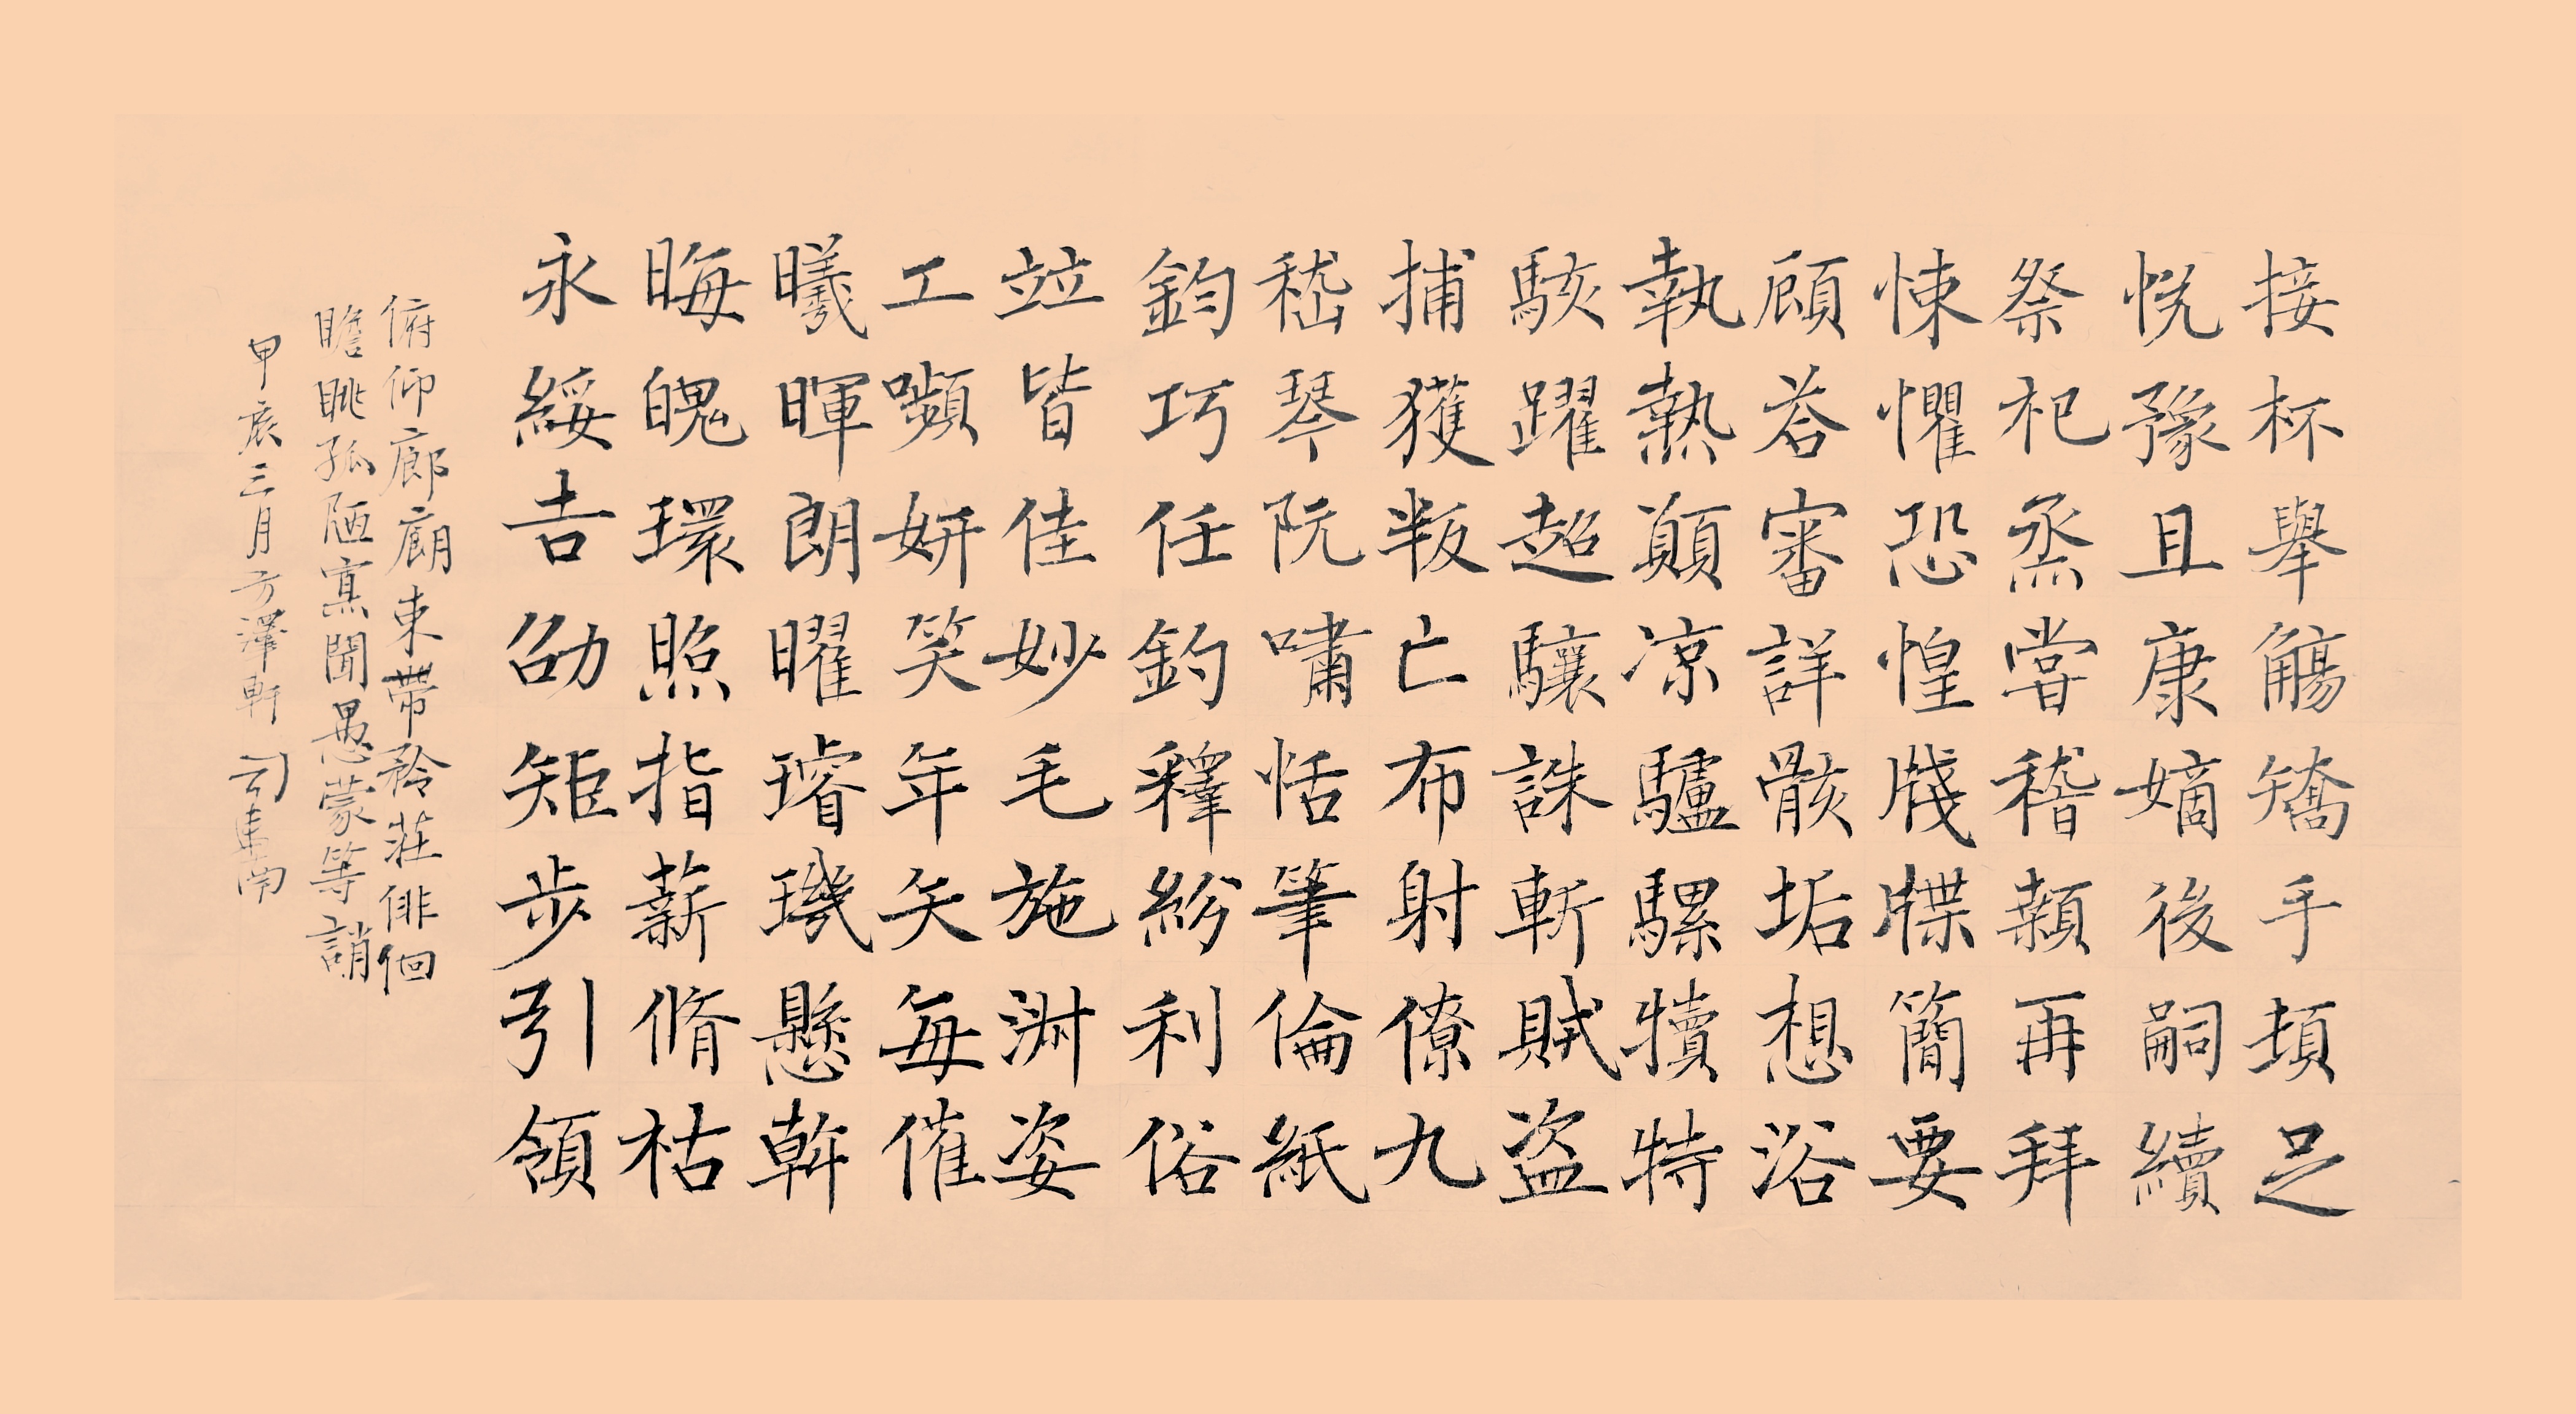 接杯舉觴矯手頓足
悅豫且康嫡後嗣續
祭祀烝甞稽顙再拜
悚懼恐惶牋牒簡要
顧荅審詳骸垢想浴
執熱願凉驢騾犢特
駭躍超驤誅斬賊盜
捕獲叛亡布射僚九
嵇琴阮嘯恬筆倫紙
鈞巧任釣釋紛利俗
竝皆佳妙毛施淑姿
工嚬妍笑年矢每催
曦暉朗曜璿璣懸斡
晦魄環照指薪脩祜
永綏吉劭矩步引領
俯仰廊廟束帶矜莊徘徊
瞻眺孤陋寡聞愚蒙等誚
甲辰三月方澤軒 司馬南